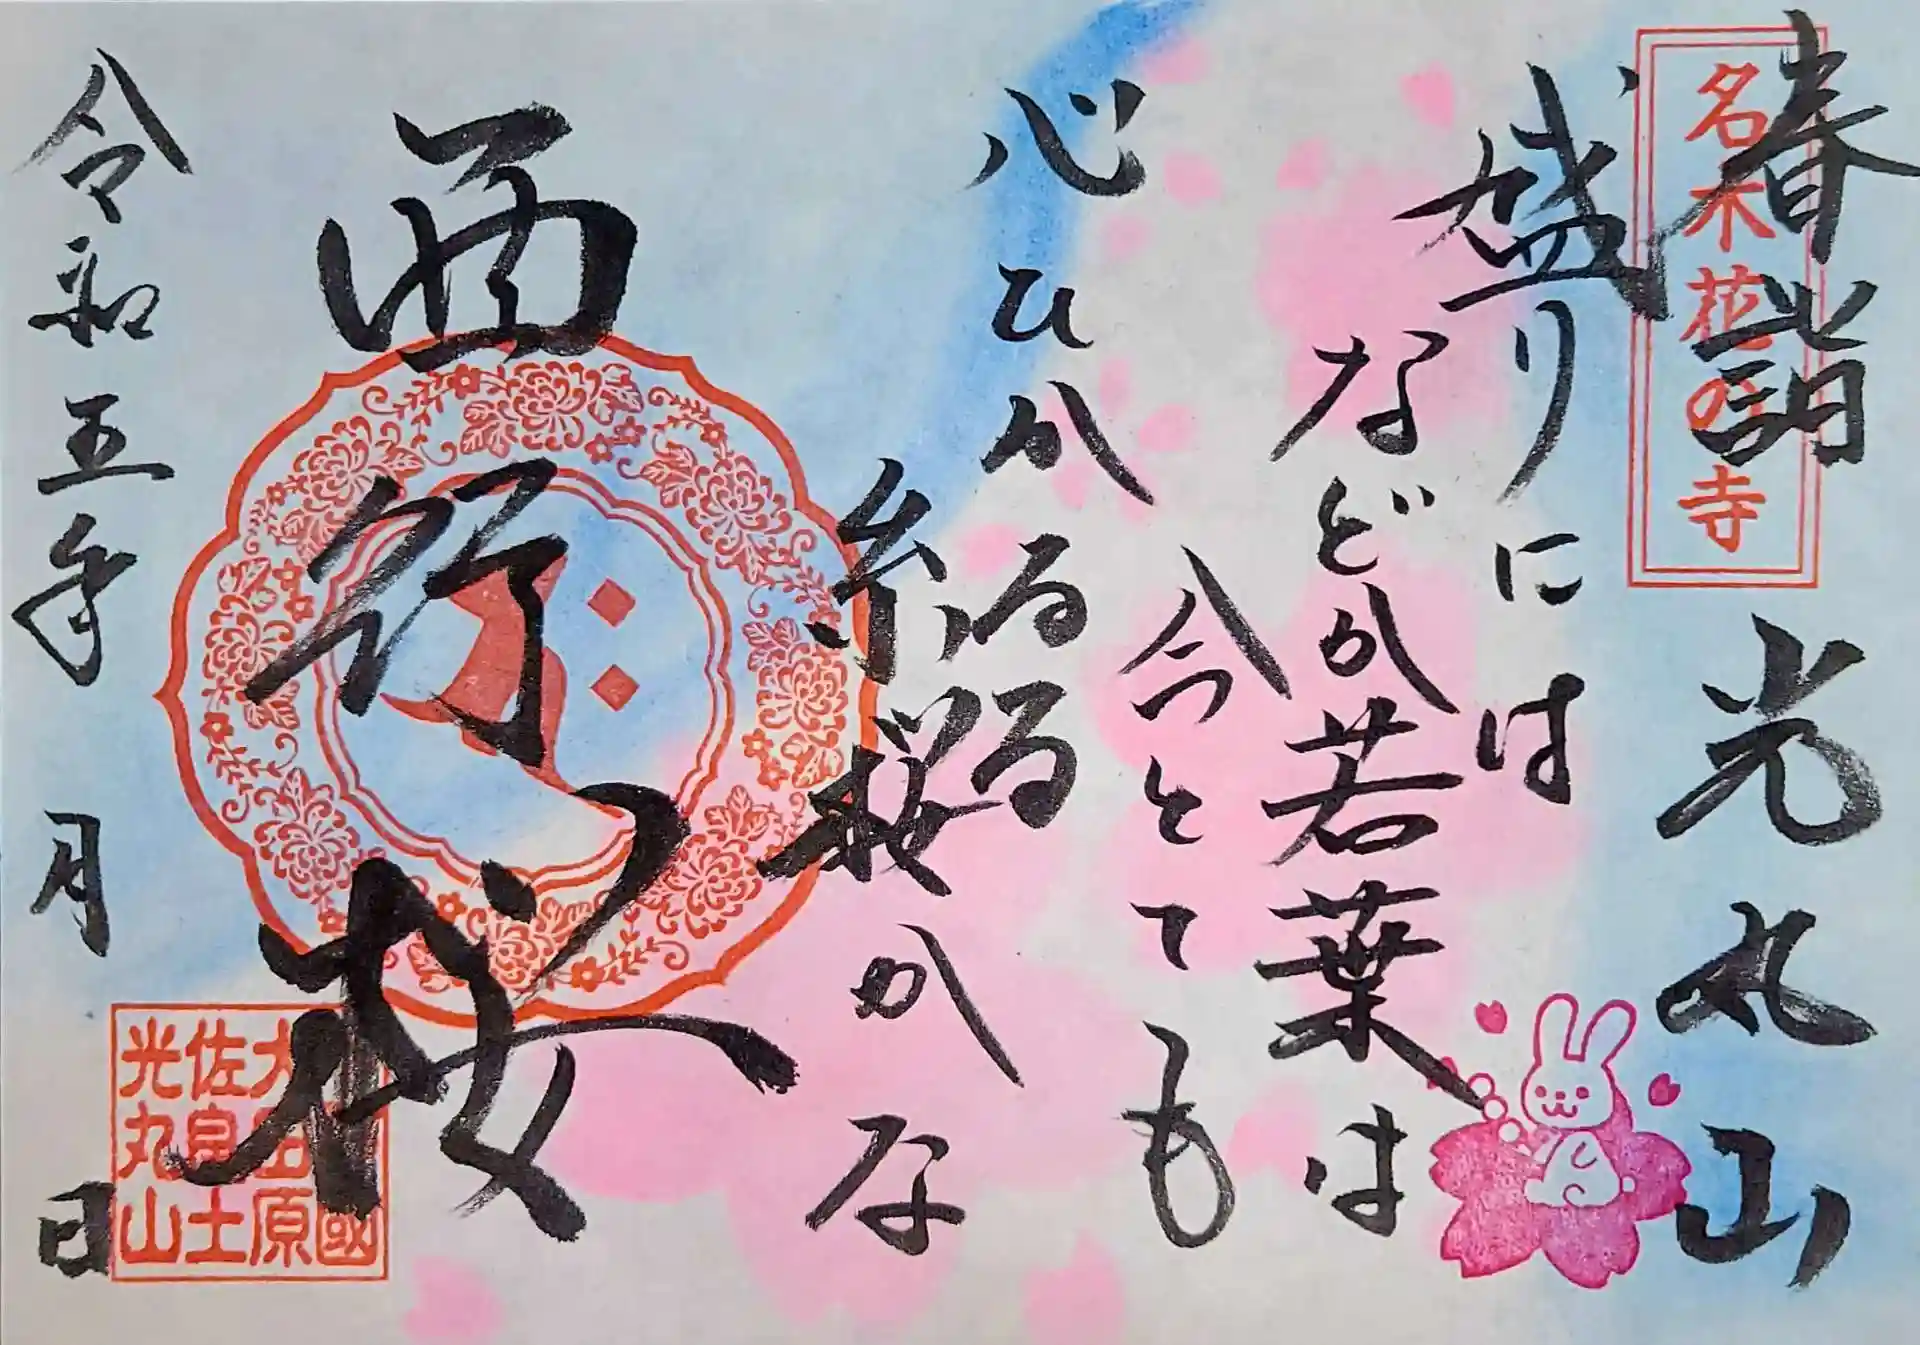 春詣 光丸山
名木花の寺
盛りには
などか若葉は
今とても
心ひかるる
糸桜かな
西行桜
令和五年 月 日
國
大田原
佐良土
光丸山